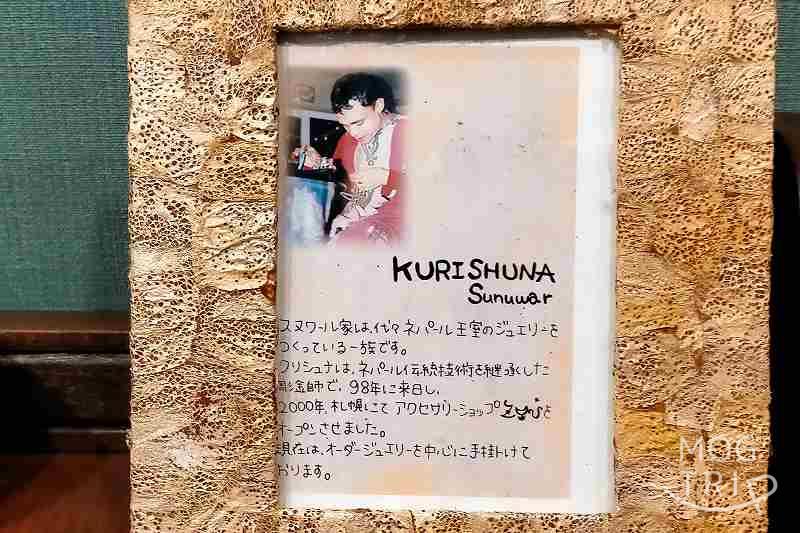 KURISHUNA
Sunuwar
スヌワール家は、代々ネパール王室のジュエリーを
つくっている一族です。
クリシュナは、ネパール伝統技術を継承した
彫金師で、98年に来日し、
2000年、札幌にて アクセサリーショップ を
オープンさせました。
現在は、オーダージュエリーを中心に手掛けて
おります。
MOG
TRIP